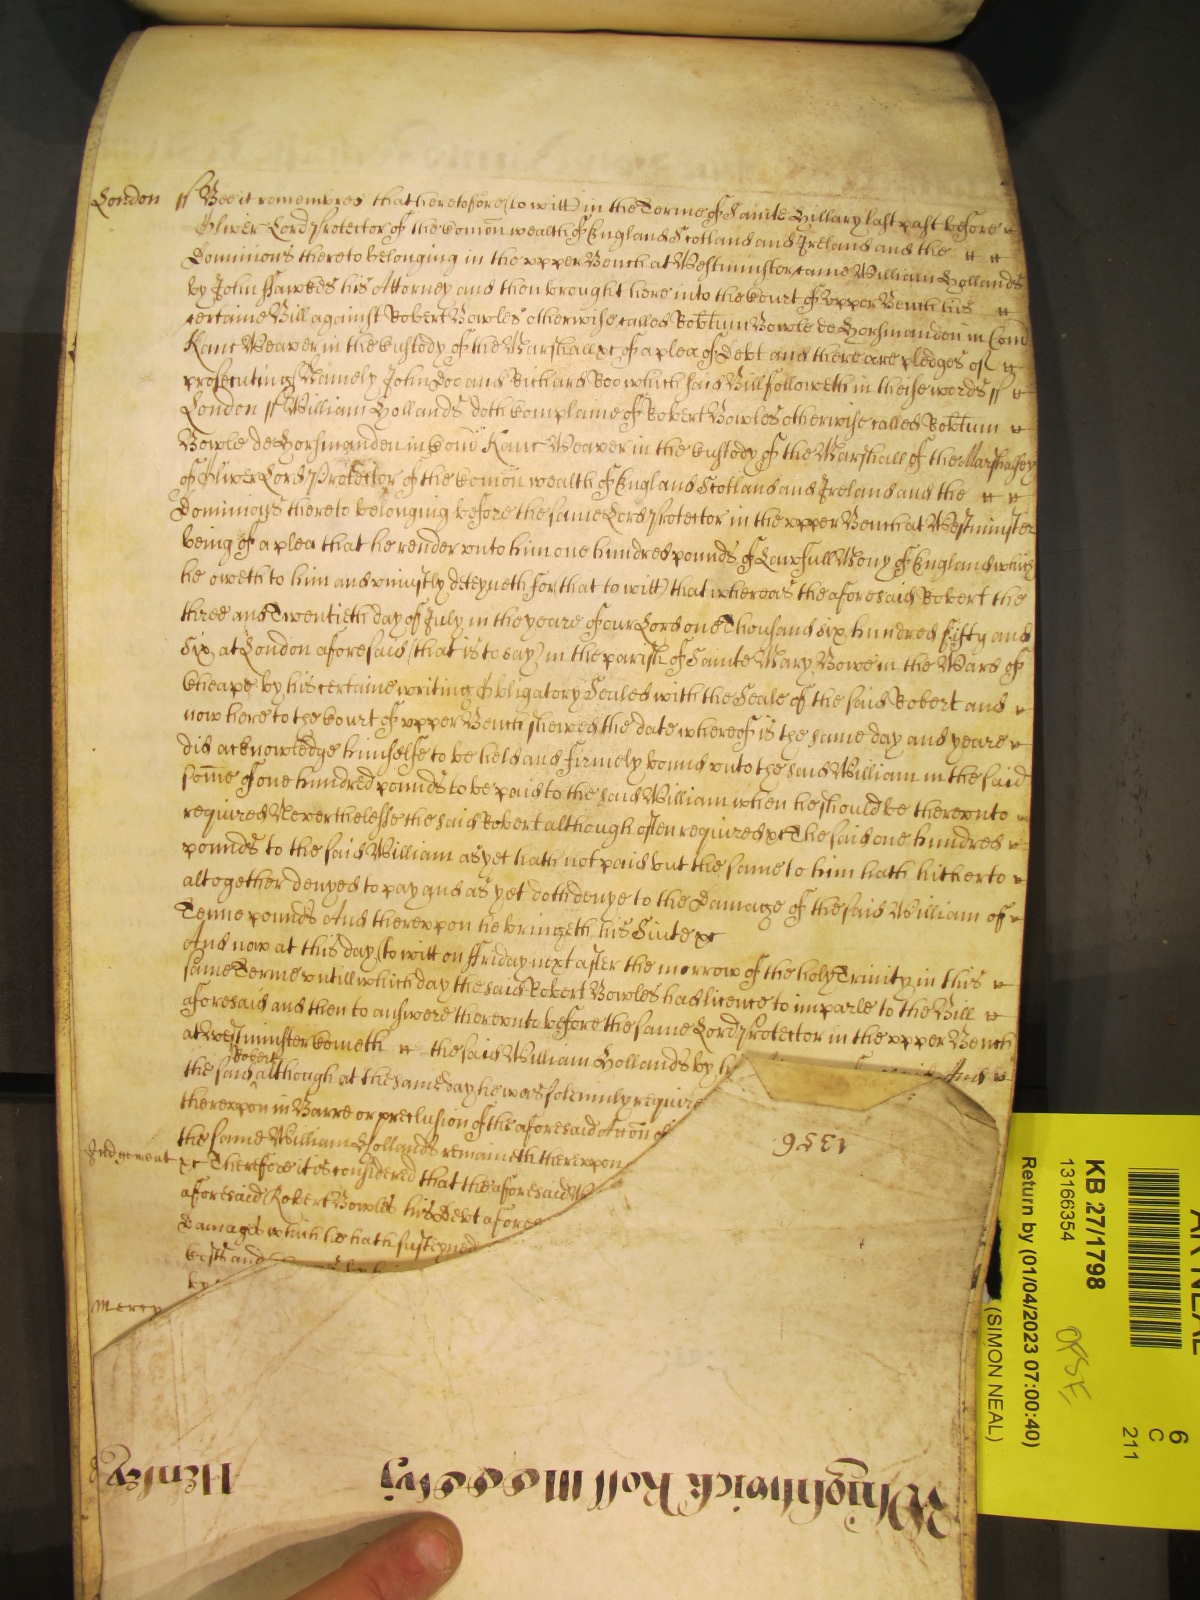 London ss Bee it remembred that heretofore (to witt) in the Terme of Sainte Hillary last past before
Oliver Lord Protector of the Comon wealth of England Scotland and Ireland and the
Dominions thereto belonging in the upper Bench at Westminster came William Hollands
by John ffawkes his Attorney and then brought here into the Court of upper Bench his
certaine Bill against Robert Bowles otherwise called Robtum Bowle de Horsmanden in Com
Kanc Weaver in the Custody of the Marshall &c of a plea of Debt and there are pledges of
prosecuting Namely John Doo and Richard Roo which said Bill followeth in theise words ss
London ss William Hollands doth Complaine of Robert Bowles otherwise called Robtum
Bowle de Horsmanden in Com Kanc Weaver in the Custody of the Marshall of the Marshalsey
of Oliver Lord Protector of the Comon wealth of England Scotland and Ireland and the
Dominions thereto belonging before the same Lord Protector in the upper Bench at Westminster
being of a plea that he render unto him one hundred pounds of Lawfull Mony of England which
he oweth to him and uniustly deteyneth for that to witt) that whereas the aforesaid Robert the
three and Twentieth day of July in the yeare of our Lord one Thousand six hundred fifty and
Six at London aforesaid (that is to say) in the parish of Sainte Mary Bowe in the Ward of
Cheape by his certaine writing obligatory Sealed with the Seale of the said Robert and
now here to the Court of upper Bench shewed the date whereof is the same day and yeare
did acknowledge himselfe to be held and firmely bound unto the said William in the said
some of one hundred pounds to be paid to the said William when he should be thereunto
required Neverthelesse the said Robert although often required &c The said one hundred
pounds to the said William as yet hath not paid but the same to him hath hitherto
altogether denyed to pay and as yet doth denye to the Damage of the said William of
Tenne pounds And thereupon he bringeth his Suite &c
And now at this day (to witt on ffriday next after the morrow of the holy Trinity in this
same Terme untill which day the said Robert Bowles had licence to imparle to the Bill
aforesaid and then to answere thereunto before the same Lord Protector in the upper Bench
at Westminster Cometh the said William Hollands by h And
the said Robert although at the same day he was solemnly require
thereupon in Barre or preclusion of the aforesaid Accon of
the same William Hollands remaineth thereupon
Judgement &c Therefore it is considered that the aforesaid W
aforesaid Robert Bowles his Debt afores
Damages which he hath susteyned
Costs and
by
Mercy
1356
Henley
Wightwick Roll
KB 27/1798
13166354
Return by (01/04/2023 07:00:40)
(SIMON NEAL)
OPSE
6
C
211